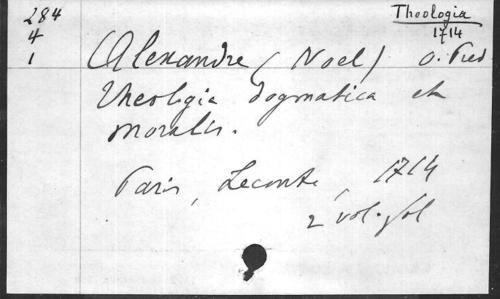 284
4
1
Theologia
1714
Alexandre (Noel) O. Pred
Theologia dogmatica et
moralis.
Paris, Leconte, 1714
2 vol. fol